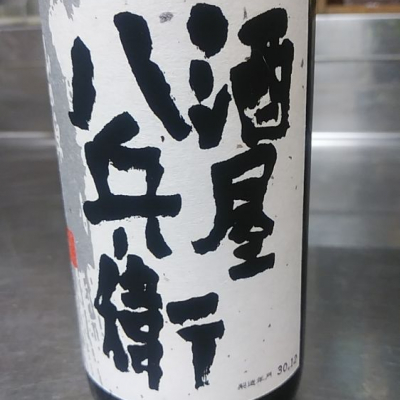 酒屋
八兵衛
製造年月 30.12